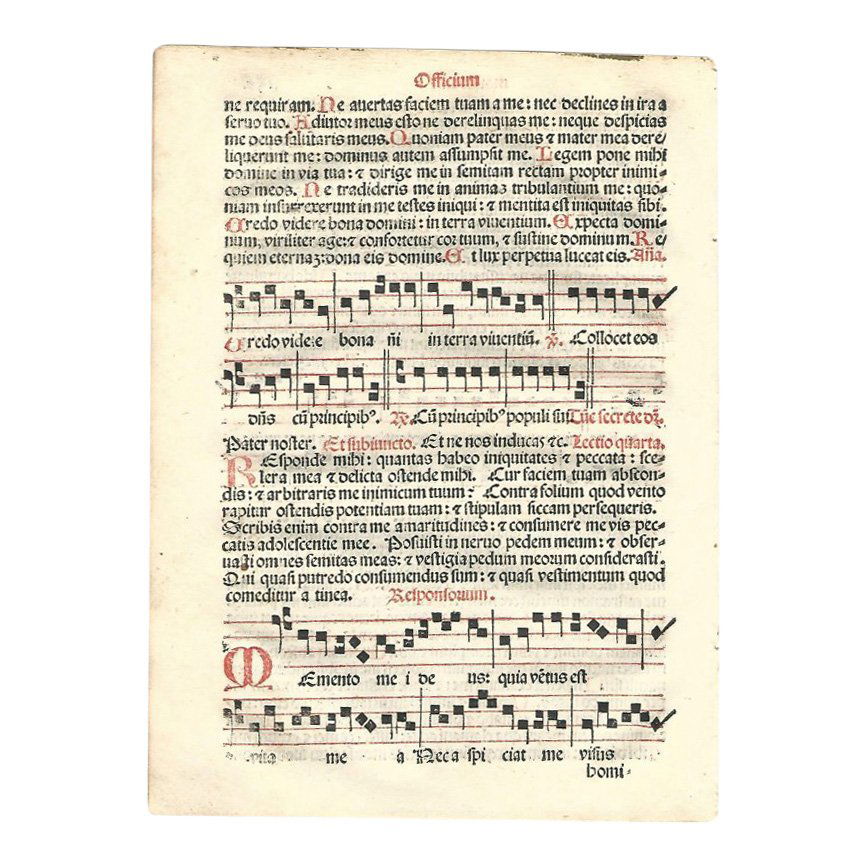 Officium
ne requiram. Ne avertas faciem tuam a me: nec declines in ira a
servo tuo. Adiutor meus esto ne derelinquas me: neque despicias
me deus salutaris meus. Quoniam pater meus ⁊ mater mea dere/
liquerunt me: dominus autem assumpsit me. Legem pone mihi
domine in via tua: ⁊ dirige me in semitam rectam propter inimi-
cos meos. Ne tradideris me in animas tribulantium me: quo-
niam insurrexerunt in me testes iniqui: ⁊ mentita est iniquitas sibi.
Credo videre bona domini: in terra viventium. Expecta domi-
num, viriliter age: ⁊ confortetur cor tuum, ⁊ sustine dominum. Re/
quiem eternaꝫ: dona eis domine. Et lux perpetua luceat eis. Aña.
Credo videre bona dñi in terra viventiũ. ℣. Collocet eos
dñs cũ principibꝰ. ℟. Cũ principibꝰ populi sui Tũc secrete dꝛ.
Pater noster. Et subiuncto. Et ne nos inducas ⁊c. Lectio quarta.
REsponde mihi: quantas habeo iniquitates ⁊ peccata: sce-
lera mea ⁊ delicta ostende mihi. Cur faciem tuam abscon-
dis: ⁊ arbitraris me inimicum tuum: Contra folium quod vento
rapitur ostendis potentiam tuam: ⁊ stipulam siccam persequeris.
Scribis enim contra me amaritudines: ⁊ consumere me vis pec-
catis adolescentie mee. Posuisti in nervo pedem meum: ⁊ obser-
vasti omnes semitas meas: ⁊ vestigia pedum meorum considerasti.
Qui quasi putredo consumendus sum: ⁊ quasi vestimentum quod
comeditur a tinea. Responsorium.
MEmento me i de us: quia vẽtus est
vita me a Nec a spi ciat me visus
homi-